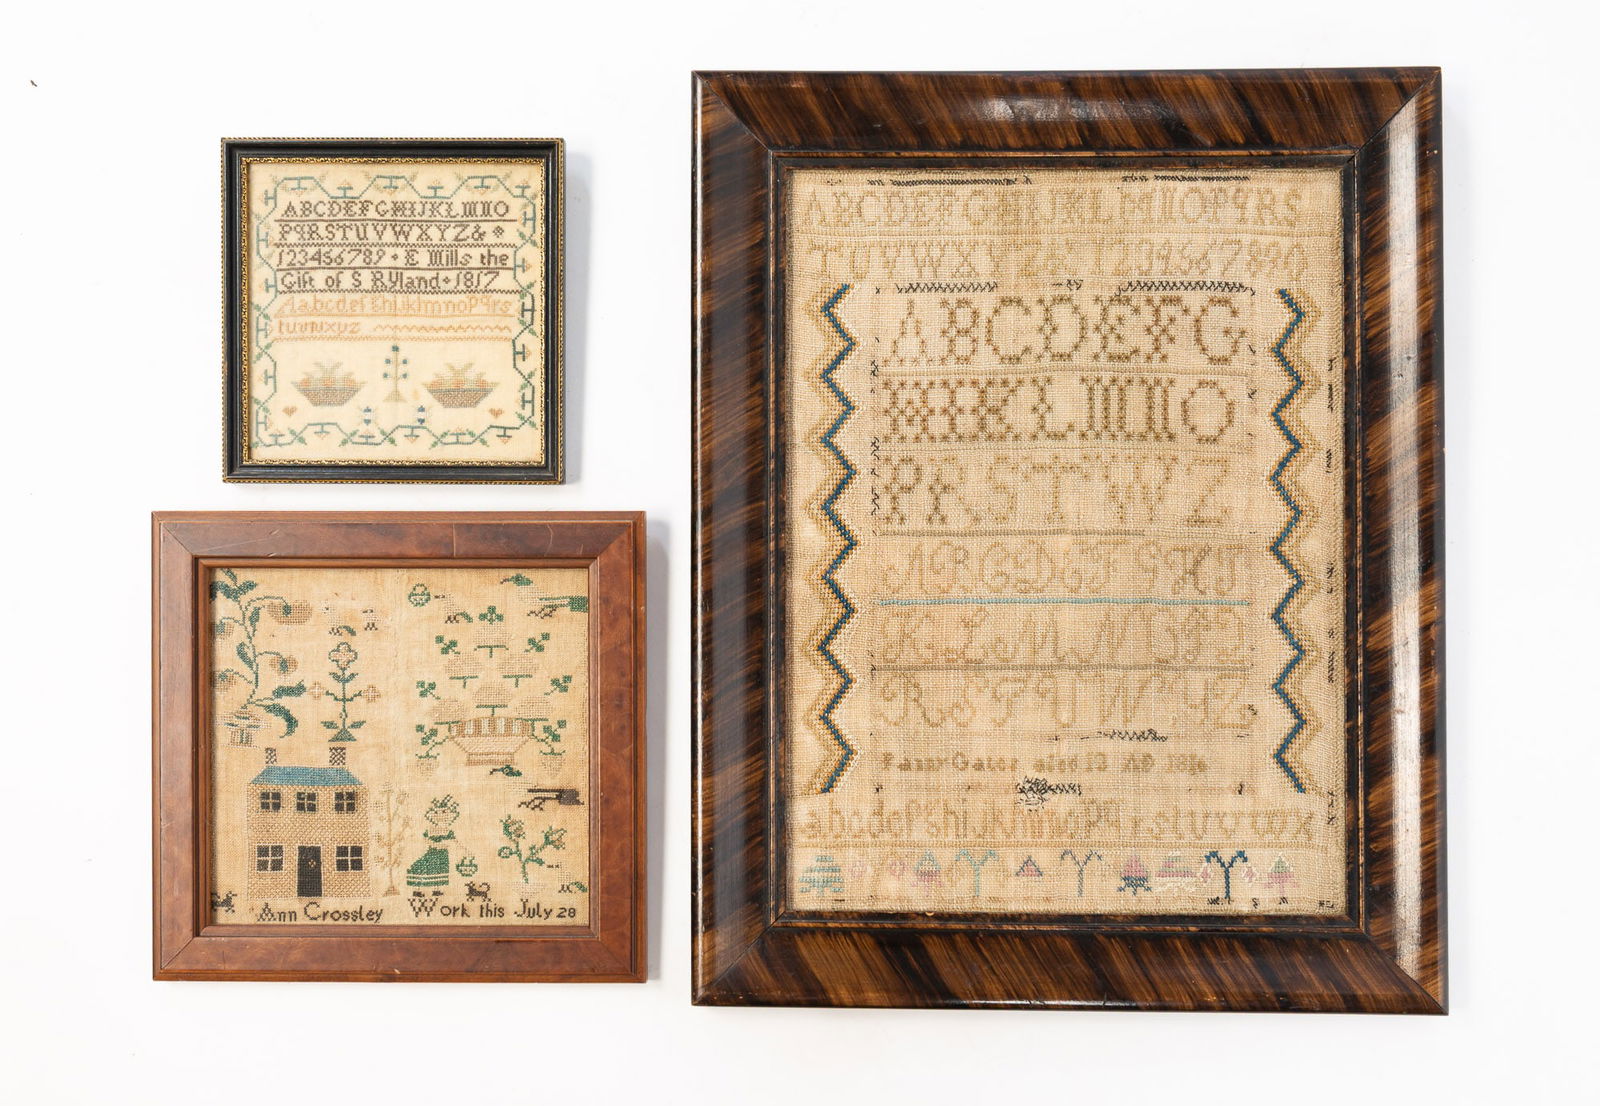 ABCDEFGHIJKLMNO
PQRSTUVWXYZ&
123456789 E Mills the
Gift of S Ryland 1817
Aabcdefghijklmnopqrs
tuvwxyz
Ann Crossley Work this July 28
ABCDEFGHIJKLMNOPQRS
TUVWXYZ&
ABCDEFG
HIKLMNO
PRSTWZ
ABCDEFGHI
KLMNOPQ
RSTUWYZ
aged 12 AD
abcdefghijklmnopq stuvwx